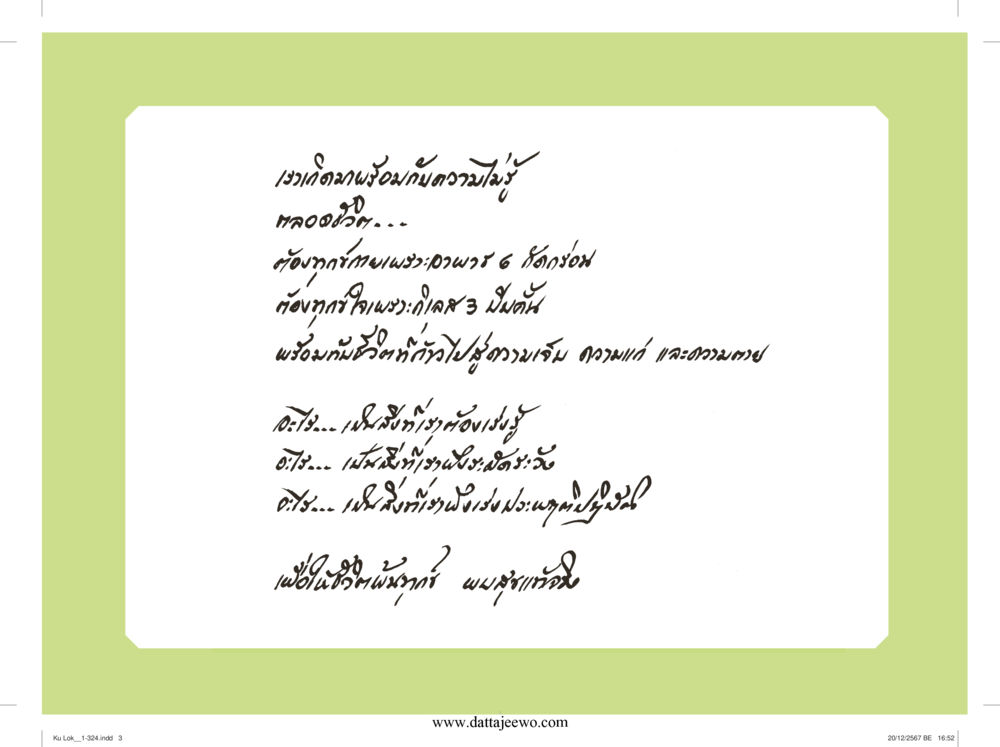 เราเกิดมาพร้อมกับความไม่รู้
ตลอดชีวิต...
ต้องทุกข์กายเพราะอาพาธ 6 กัดกร่อน
ต้องทุกข์ใจเพราะกิเลส 3 บีบคั้น
พร้อมกับชีวิตที่ก้าวไปสู่ความเจ็บ ความแก่ และความตาย
อะไร... เป็นสิ่งที่เราต้องเร่งรู้
อะไร... เป็นสิ่งที่เราพึงระมัดระวัง
อะไร... เป็นสิ่งที่เราพึงเร่งประพฤติปฏิบัติ
เพื่อให้ชีวิตพ้นทุกข์ พบสุขแท้จริง
www.dattajeewo.com
Ku Lok__1-324.indd 3
20/12/2567 BE 16:52